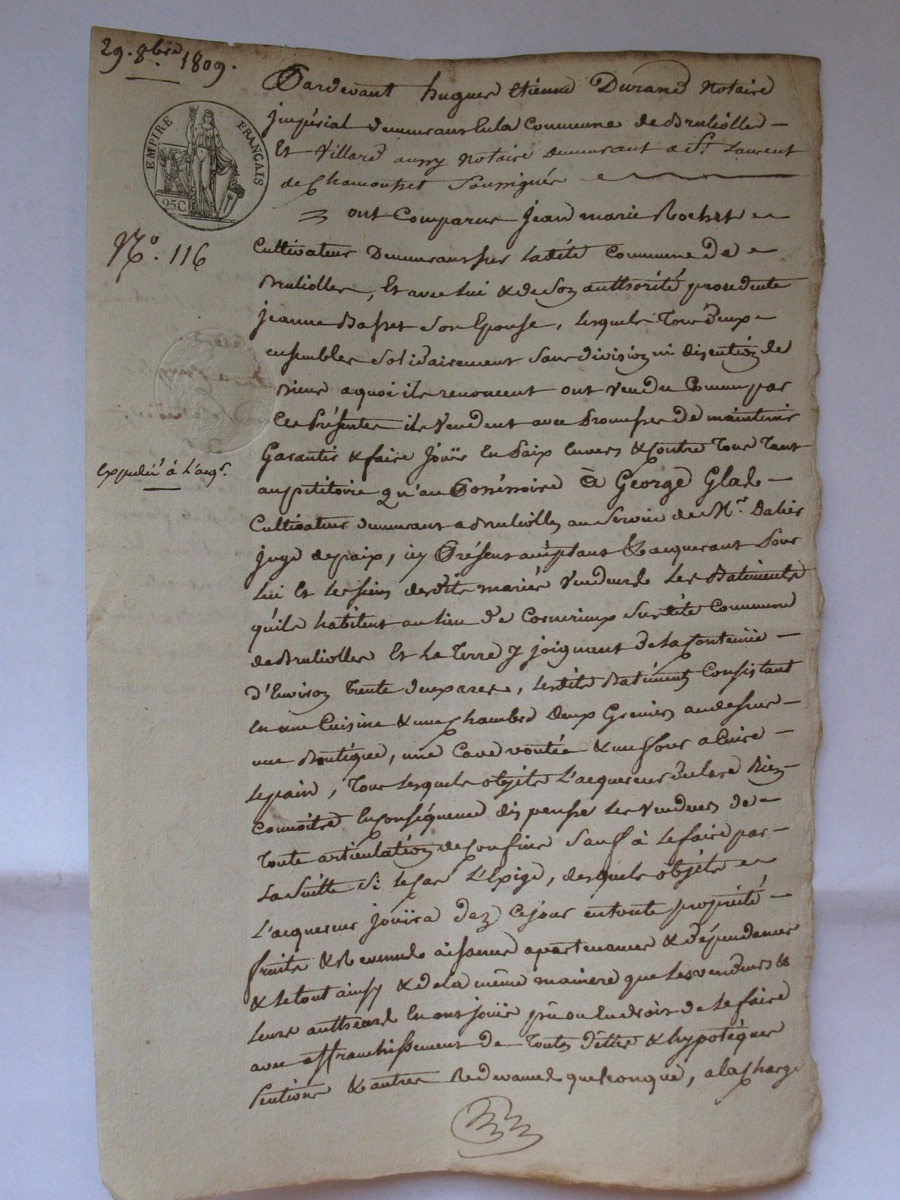 29. 8bre 1809.
EMPIRE FRANÇAIS
25C
No. 116
Expédié à l'acqr.
Pardevant hugues etienne Durand Notaire
jmpérial demeurant En la Commune de Brulioles
Et Villard aussy Notaire demeurant a St. Laurent
de Chamousset Soussignés
ont Comparus Jean marie Rochet
Cultivateur Demeurant sur laditte Commune de
Brulioles, Et avec lui & de son authorité procedente
jeanne Basset Son Epouse, lesquels Tous deux
ensembles Solidairement Sans division ni discution de
biens a quoi ils renoncent ont Vendu Comme par
Ces présentes ils Vendent avec Promesse de maintenir
Garantir & faire joüir En Paix Envers & Contre Tous Tant
au petitoire qu'au Possessoire à George Glad
Cultivateur demeurant a Brulioles au Service de Mr. Dalier
juge de paix, icy Présent acceptant & acquerant Pour
lui Et les siens desdits mariés Vendeurs Les Batiments
qu'ils habitent au lieu de sur dite Commune
de Brulioles Et la Terre y joignant de la contenüe
d'Environ Trente deux ares, lesdits Batiments Consistant
En une Cuisine & une Chambre deux Greniers au dessus
une Boutique, une Cave voutée & un four a Cuire
le pain, Tous lesquels objets L'acquereur declare Bien
Connoitre En conséquence dispense les Vendeurs de
Toute articulation de confins Sauf à le faire par
La Suitte Si le cas L'Exige, desquels objets
L'acquereur joüira dez ce jour en toute propriété
fruits & Revenus aisances apartenances & dépendances
& le tout ainsy & de la même maniere que les vendeurs &
leurs autheurs En ont joüis pû ou En droit de le faire
avec affranchissement de Toutes dettes & hypotéques
Pentions & autres Redevances quelconques, a la Charge